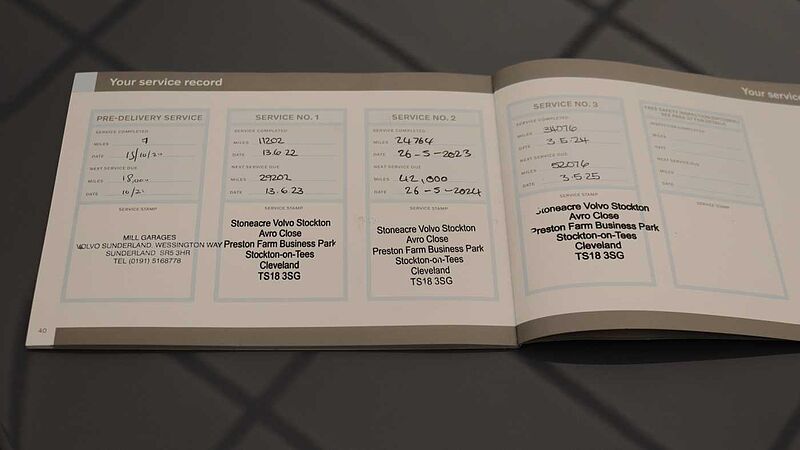 Your service record
PRE-DELIVERY SERVICE
SERVICE COMPLETED
MILES 7
DATE 15/10/2
NEXT SERVICE DUE
MILES 18,000
DATE 10/2
SERVICE STAMP
MILL GARAGES
VOLVO SUNDERLAND, WESSINGTON WAY
SUNDERLAND SR5 3HR
TEL (0191) 5168778
SERVICE NO. 1
SERVICE COMPLETED
MILES 11202
DATE 13.6.22
NEXT SERVICE DUE
MILES 29202
DATE 13.6.23
SERVICE STAMP
Stoneacre Volvo Stockton
Avro Close
Preston Farm Business Park
Stockton-on-Tees
Cleveland
TS18 3SG
SERVICE NO. 2
SERVICE COMPLETED
MILES 24764
DATE 26-5-2023
NEXT SERVICE DUE
MILES 42,000
DATE 26-5-2024
SERVICE STAMP
Stoneacre Volvo Stockton
Avro Close
Preston Farm Business Park
Stockton-on-Tees
Cleveland
TS18 3SG
40
Your service
SERVICE NO. 3
SERVICE COMPLETED
MILES 34076
DATE 3.5.24
NEXT SERVICE DUE
MILES 52076
DATE 3.5.25
SERVICE STAMP
Stoneacre Volvo Stockton
Avro Close
Preston Farm Business Park
Stockton-on-Tees
Cleveland
TS18 3SG
MILES
DATE
NEXT SERVICE DUE
MILES
DATE
SERVICE STAMP